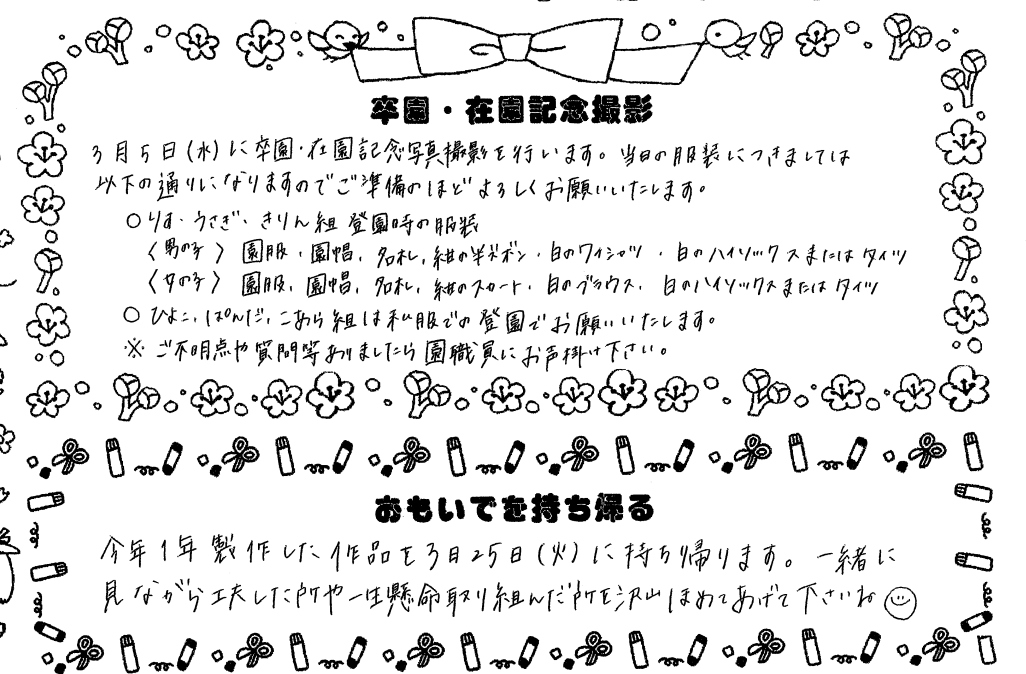 卒園・在園記念撮影
3月5日(水)に卒園・在園記念写真撮影を行います。当日の服装につきましては
以下の通りになりますのでご準備のほどよろしくお願いいたします。
○りす・うさぎ・きりん組 登園時の服装
〈男の子〉園服・園帽、名札、紺の半ズボン・白のワイシャツ・白のハイソックスまたはタイツ
〈女の子〉園服、園帽、名札、紺のスカート・白のブラウス、白のハイソックスまたはタイツ
○ひよこ、ぱんだ、こあら組は私服での登園でお願いいたします。
※ご不明点や質問等ありましたら園職員にお声掛け下さい。
おもいでを持ち帰る
今年1年製作した作品を3月25日(火)に持ち帰ります。一緒に
見ながら工夫した所や一生懸命取り組んだ所を沢山ほめてあげて下さいね